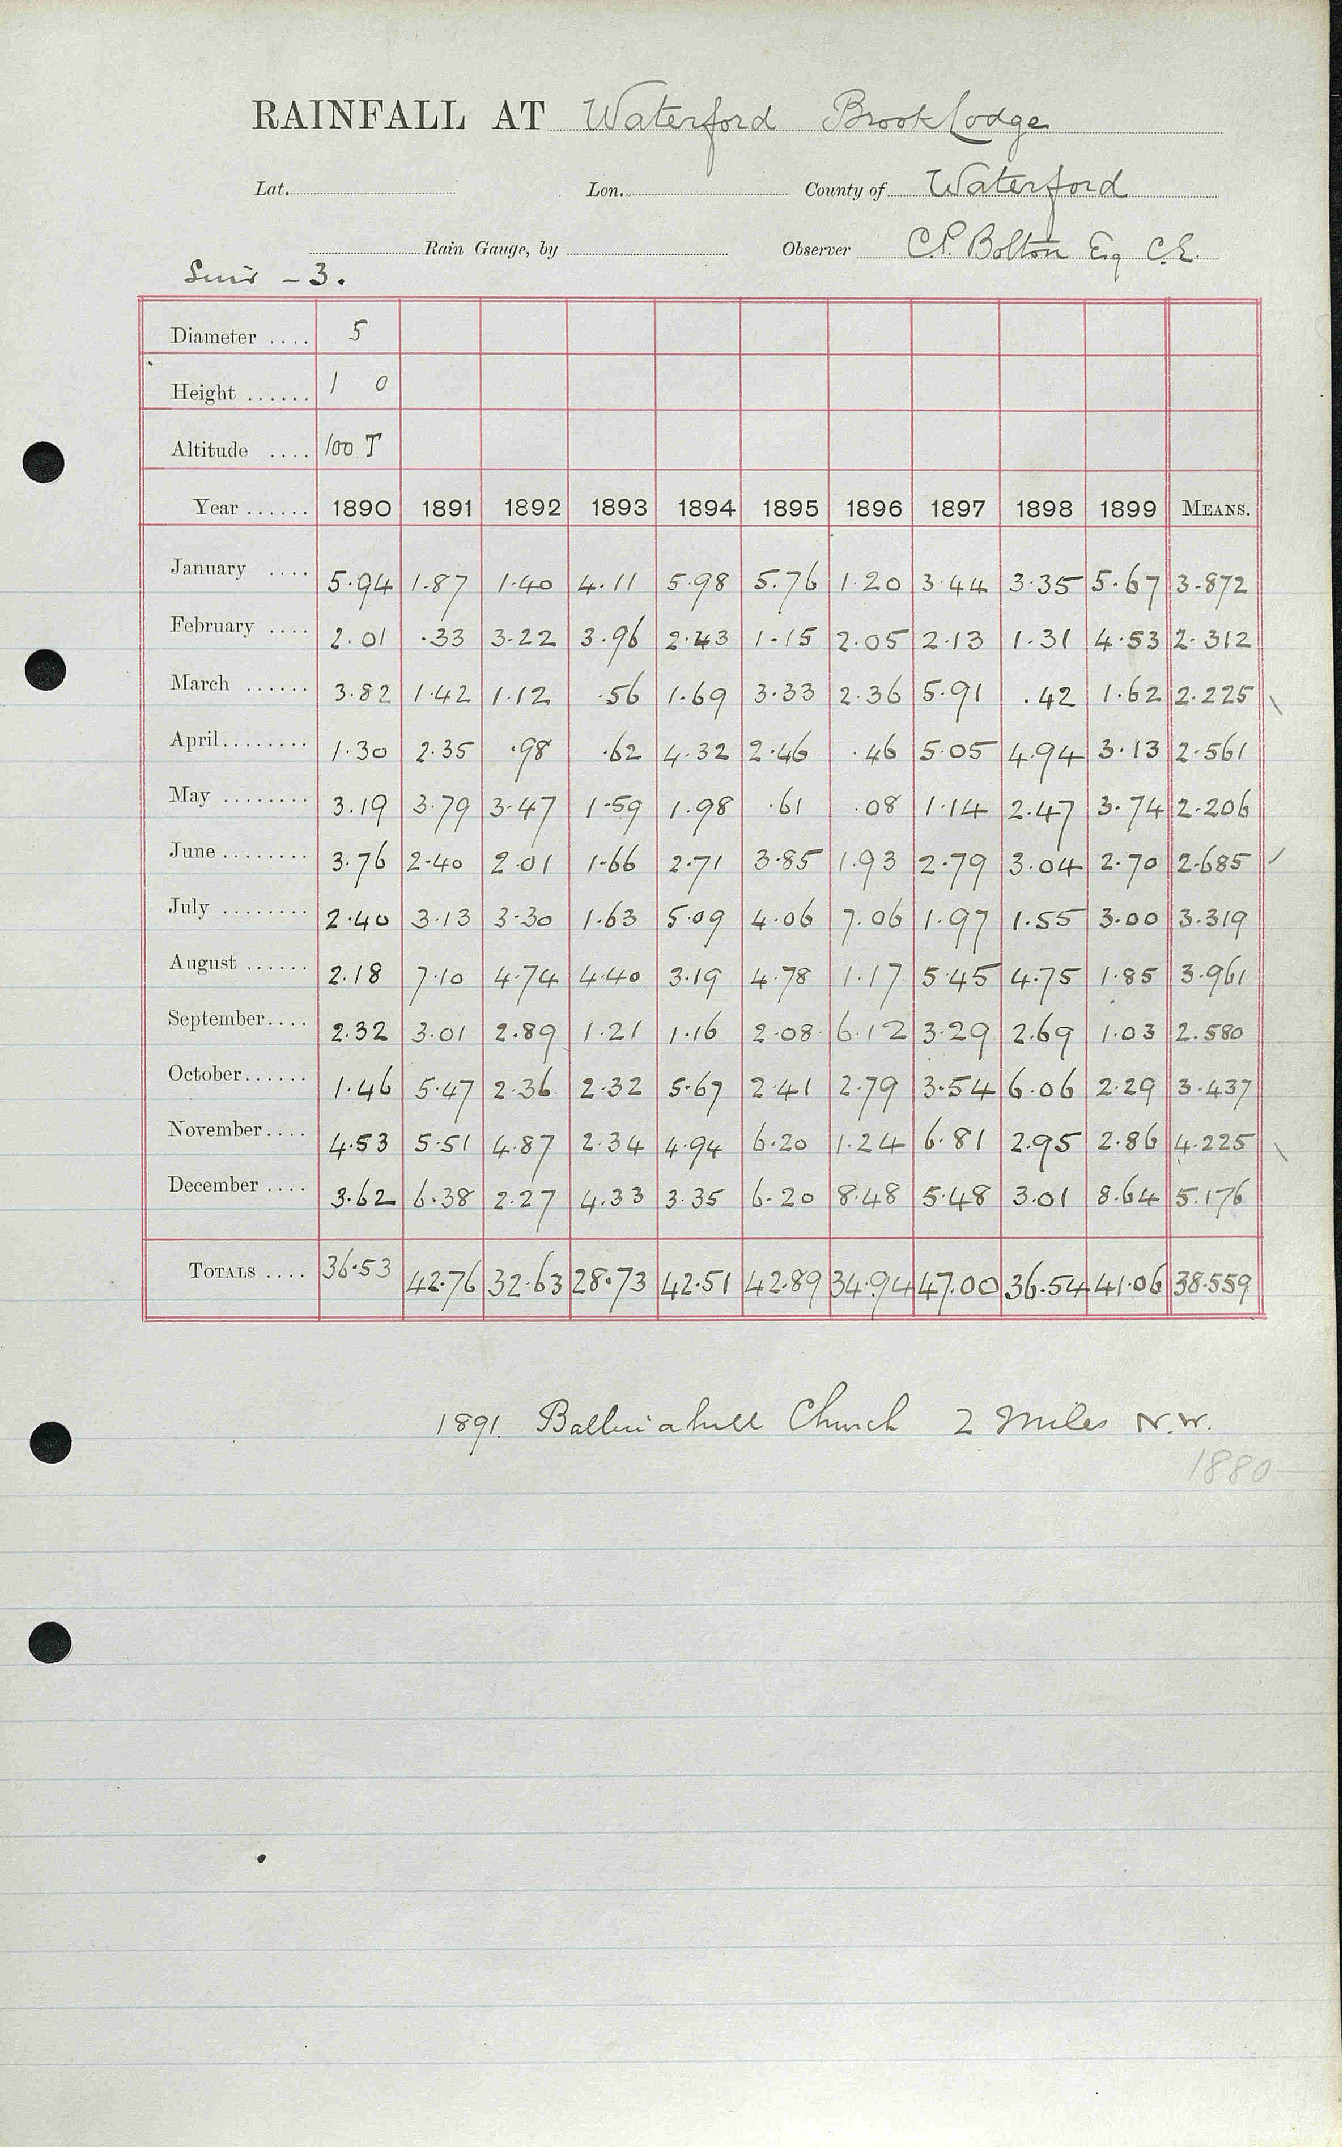 RAINFALL AT Waterford Brook Lodge
Lat. Lon. County of Waterford
Rain Gauge, by Observer C.P. Bolton Esq C.E.
Suir - 3.
Diameter .... 5
Height ...... 1 0
Altitude .... 100 T
Year ...... 1890 1891 1892 1893 1894 1895 1896 1897 1898 1899 MEANS.
January .... 5.94 1.87 1.40 4.11 5.98 5.76 1.20 3.44 3.35 5.67 3.872
February .... 2.01 .33 3.22 3.96 2.43 1.15 2.05 2.13 1.31 4.53 2.312
March ...... 3.82 1.42 1.12 .56 1.69 3.33 2.36 5.91 .42 1.62 2.225
April........ 1.30 2.35 .98 .62 4.32 2.46 .46 5.05 4.94 3.13 2.561
May ........ 3.19 3.79 3.47 1.59 1.98 .61 .08 1.14 2.47 3.74 2.206
June........ 3.76 2.40 2.01 1.66 2.71 3.85 1.93 2.79 3.04 2.70 2.685
July ........ 2.40 3.13 3.30 1.63 5.09 4.06 7.06 1.97 1.55 3.00 3.319
August ...... 2.18 7.10 4.74 4.40 3.19 4.78 1.17 5.45 4.75 1.85 3.961
September.... 2.32 3.01 2.89 1.21 1.16 2.08 6.12 3.29 2.69 1.03 2.580
October...... 1.46 5.47 2.36 2.32 5.67 2.41 2.79 3.54 6.06 2.29 3.437
November.... 4.53 5.51 4.87 2.34 4.94 6.20 1.24 6.81 2.95 2.86 4.225
December .... 3.62 6.38 2.27 4.33 3.35 6.20 8.48 5.48 3.01 8.64 5.176
TOTALS .... 36.53 42.76 32.63 28.73 42.51 42.89 34.94 47.00 36.54 41.06 38.559
1891. Ballinahill Church 2 Miles N.W.
1880